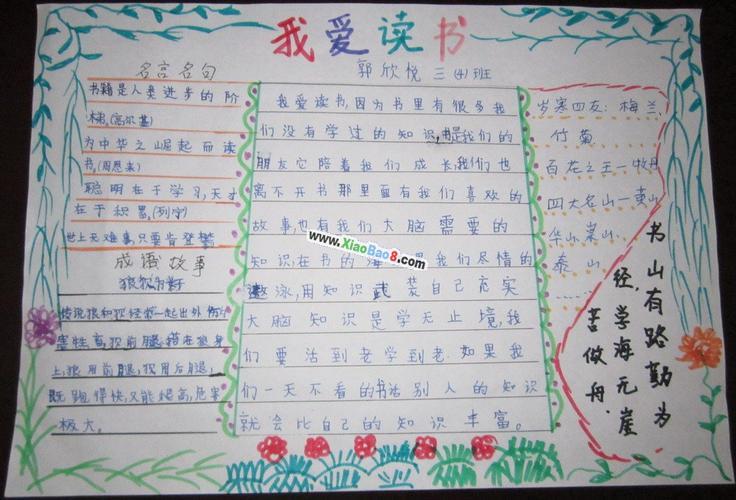 我爱读书
郭欣悦 三(4)班
名言名句
书籍是人类进步的阶
梯。(高尔基)
为中华之崛起而读
书。(周恩来)
聪明在于学习,天才
在于积累。(列宁)
世上无难事只要肯登攀
成语故事
狼狈为奸
传说狼和狈经常一起出外伤
害牲畜,狈前腿搭在狼身
上,狼用前腿,狈用后腿,
既跑得快,又能爬高,危害
极大。
我爱读书,因为书里有很多我
们没有学过的知识,书是我们的
朋友它陪着我们成长,我们也
离不开书那里面有我们喜欢的
故事也有我们大脑需要的
知识在书的海 里我们尽情的
遨泳,用知识武装自己充实
大脑知识是学无止境,我
们要活到老学到老.如果我
们一天不看的书话别人的知识
就会比自己的知识丰富。
www.XiaoBao8.com
岁寒四友:梅兰
竹菊
百花之王一牡丹
四大名山一
华山
泰山
......
书山有路勤为
经,学海无崖
苦做舟.